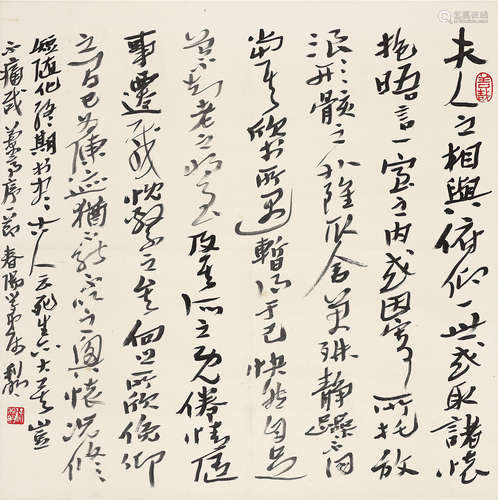 夫人之相與俯仰一世或取諸懷
抱晤言一室之内或因寄所托放
浪形骸之外雖取舍萬殊静躁不同
當其欣於所遇暫得于己快然自足
知老之將至及其所之既倦情隨
事遷感慨繫之矣向之所欣俛仰
之間已为陳迹猶不能不以之興懷况修
短隨化終期於盡古人云死生亦大矣豈
不痛哉 蘭亭序一節 春陽学弟属